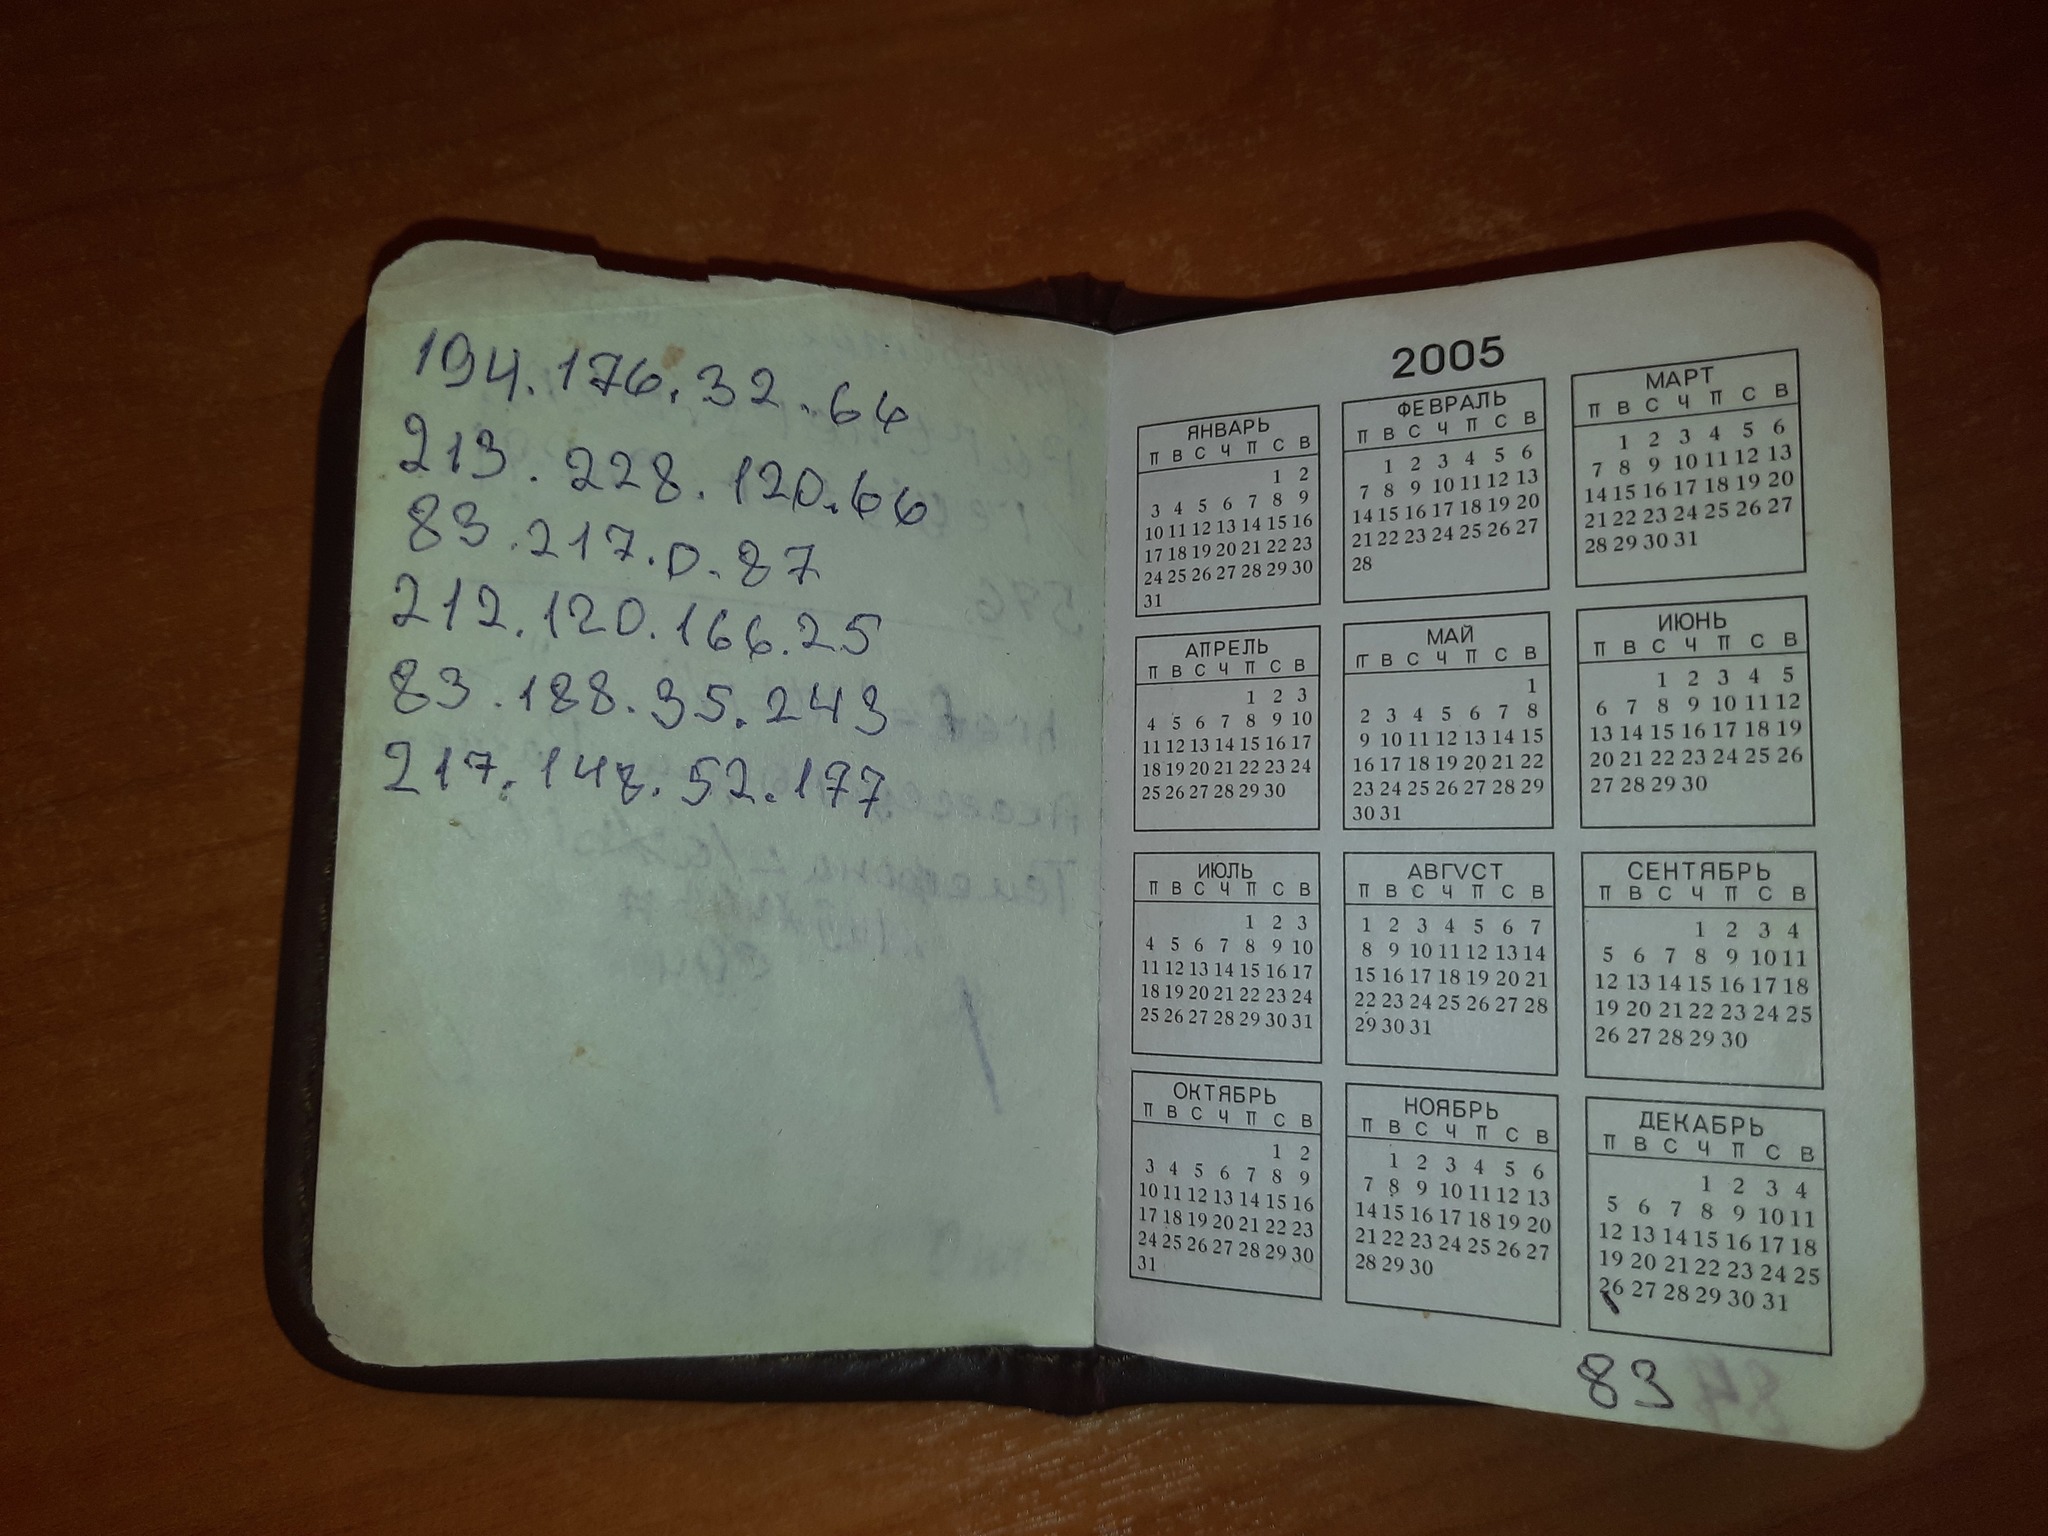 194.176.32.66
213.228.120.66
83.217.0.87
212.120.166.25
83.188.35.243
217.148.52.177
2005
ЯНВАРЬ
П В С Ч П С В
1 2
3 4 5 6 7 8 9
10 11 12 13 14 15 16
17 18 19 20 21 22 23
24 25 26 27 28 29 30
31
ФЕВРАЛЬ
П В С Ч П С В
1 2 3 4 5 6
7 8 9 10 11 12 13
14 15 16 17 18 19 20
21 22 23 24 25 26 27
28
МАРТ
П В С Ч П С В
1 2 3 4 5 6
7 8 9 10 11 12 13
14 15 16 17 18 19 20
21 22 23 24 25 26 27
28 29 30 31
АПРЕЛЬ
П В С Ч П С В
1 2 3
4 5 6 7 8 9 10
11 12 13 14 15 16 17
18 19 20 21 22 23 24
25 26 27 28 29 30
МАЙ
П В С Ч П С В
1
2 3 4 5 6 7 8
9 10 11 12 13 14 15
16 17 18 19 20 21 22
23 24 25 26 27 28 29
30 31
ИЮНЬ
П В С Ч П С В
1 2 3 4 5
6 7 8 9 10 11 12
13 14 15 16 17 18 19
20 21 22 23 24 25 26
27 28 29 30
ИЮЛЬ
П В С Ч П С В
1 2 3
4 5 6 7 8 9 10
11 12 13 14 15 16 17
18 19 20 21 22 23 24
25 26 27 28 29 30 31
АВГУСТ
П В С Ч П С В
1 2 3 4 5 6 7
8 9 10 11 12 13 14
15 16 17 18 19 20 21
22 23 24 25 26 27 28
29 30 31
СЕНТЯБРЬ
П В С Ч П С В
1 2 3 4
5 6 7 8 9 10 11
12 13 14 15 16 17 18
19 20 21 22 23 24 25
26 27 28 29 30
ОКТЯБРЬ
П В С Ч П С В
1 2
3 4 5 6 7 8 9
10 11 12 13 14 15 16
17 18 19 20 21 22 23
24 25 26 27 28 29 30
31
НОЯБРЬ
П В С Ч П С В
1 2 3 4 5 6
7 8 9 10 11 12 13
14 15 16 17 18 19 20
21 22 23 24 25 26 27
28 29 30
ДЕКАБРЬ
П В С Ч П С В
1 2 3 4
5 6 7 8 9 10 11
12 13 14 15 16 17 18
19 20 21 22 23 24 25
26 27 28 29 30 31
83